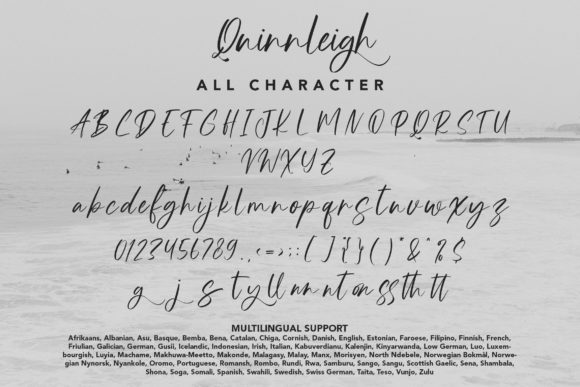 Quinnleigh
ALL CHARACTER
ABCDEFGHIJKLMNOPQRSTU
VWXYZ
abcdefghijklmnopqrstuvwxyz
0123456789.,<=>;:[]{}()*&^%$
g j s ty ll nn nt on ss th tt
MULTILINGUAL SUPPORT
Afrikaans, Albanian, Asu, Basque, Bemba, Bena, Catalan, Chiga, Cornish, Danish, English, Estonian, Faroese, Filipino, Finnish, French,
Friulian, Galician, German, Gusii, Icelandic, Indonesian, Irish, Italian, Kabuverdianu, Kalenjin, Kinyarwanda, Low German, Luo, Luxem-
bourgish, Luyia, Machame, Makhuwa-Meetto, Makonde, Malagasy, Malay, Manx, Morisyen, North Ndebele, Norwegian Bokmål, Norwe-
gian Nynorsk, Nyankole, Oromo, Portuguese, Romansh, Rombo, Rundi, Rwa, Samburu, Sango, Sangu, Scottish Gaelic, Sena, Shambala,
Shona, Soga, Somali, Spanish, Swahili, Swedish, Swiss German, Taita, Teso, Vunjo, Zulu